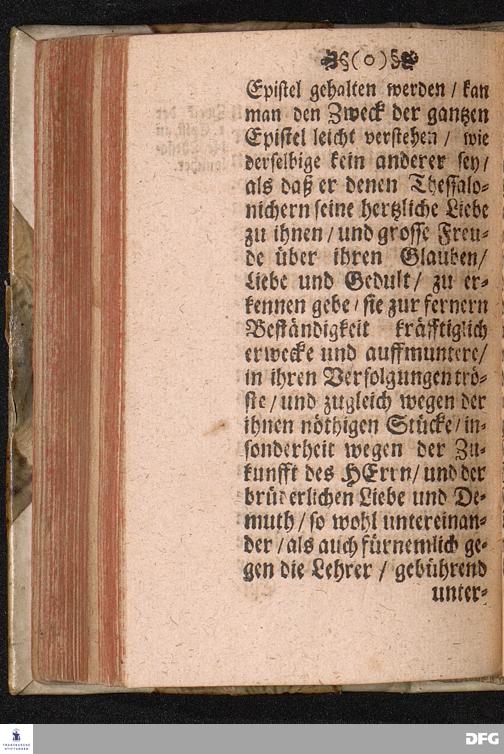 §(o)§
Epistel gehalten werden / kan
man den Zweck der gantzen
Epistel leicht verstehen / wie
derselbige kein anderer sey /
als daß er denen Thessalo-
nichern seine hertzliche Liebe
zu ihnen / und grosse Freu-
de über ihren Glauben /
Liebe und Gedult / zu er-
kennen gebe / sie zur fernern
Beständigkeit kräfftiglich
erwecke und auffmuntere /
in ihren Verfolgungen trö-
ste / und zugleich wegen der
ihnen nöthigen Stücke / in-
sonderheit wegen der Zu-
kunfft des HErrn / und der
brüderlichen Liebe und De-
muth / so wohl untereinan-
der / als auch fürnemlich ge-
gen die Lehrer / gebührend
unter-
FRANCKESCHE
STIFTUNGEN
DFG